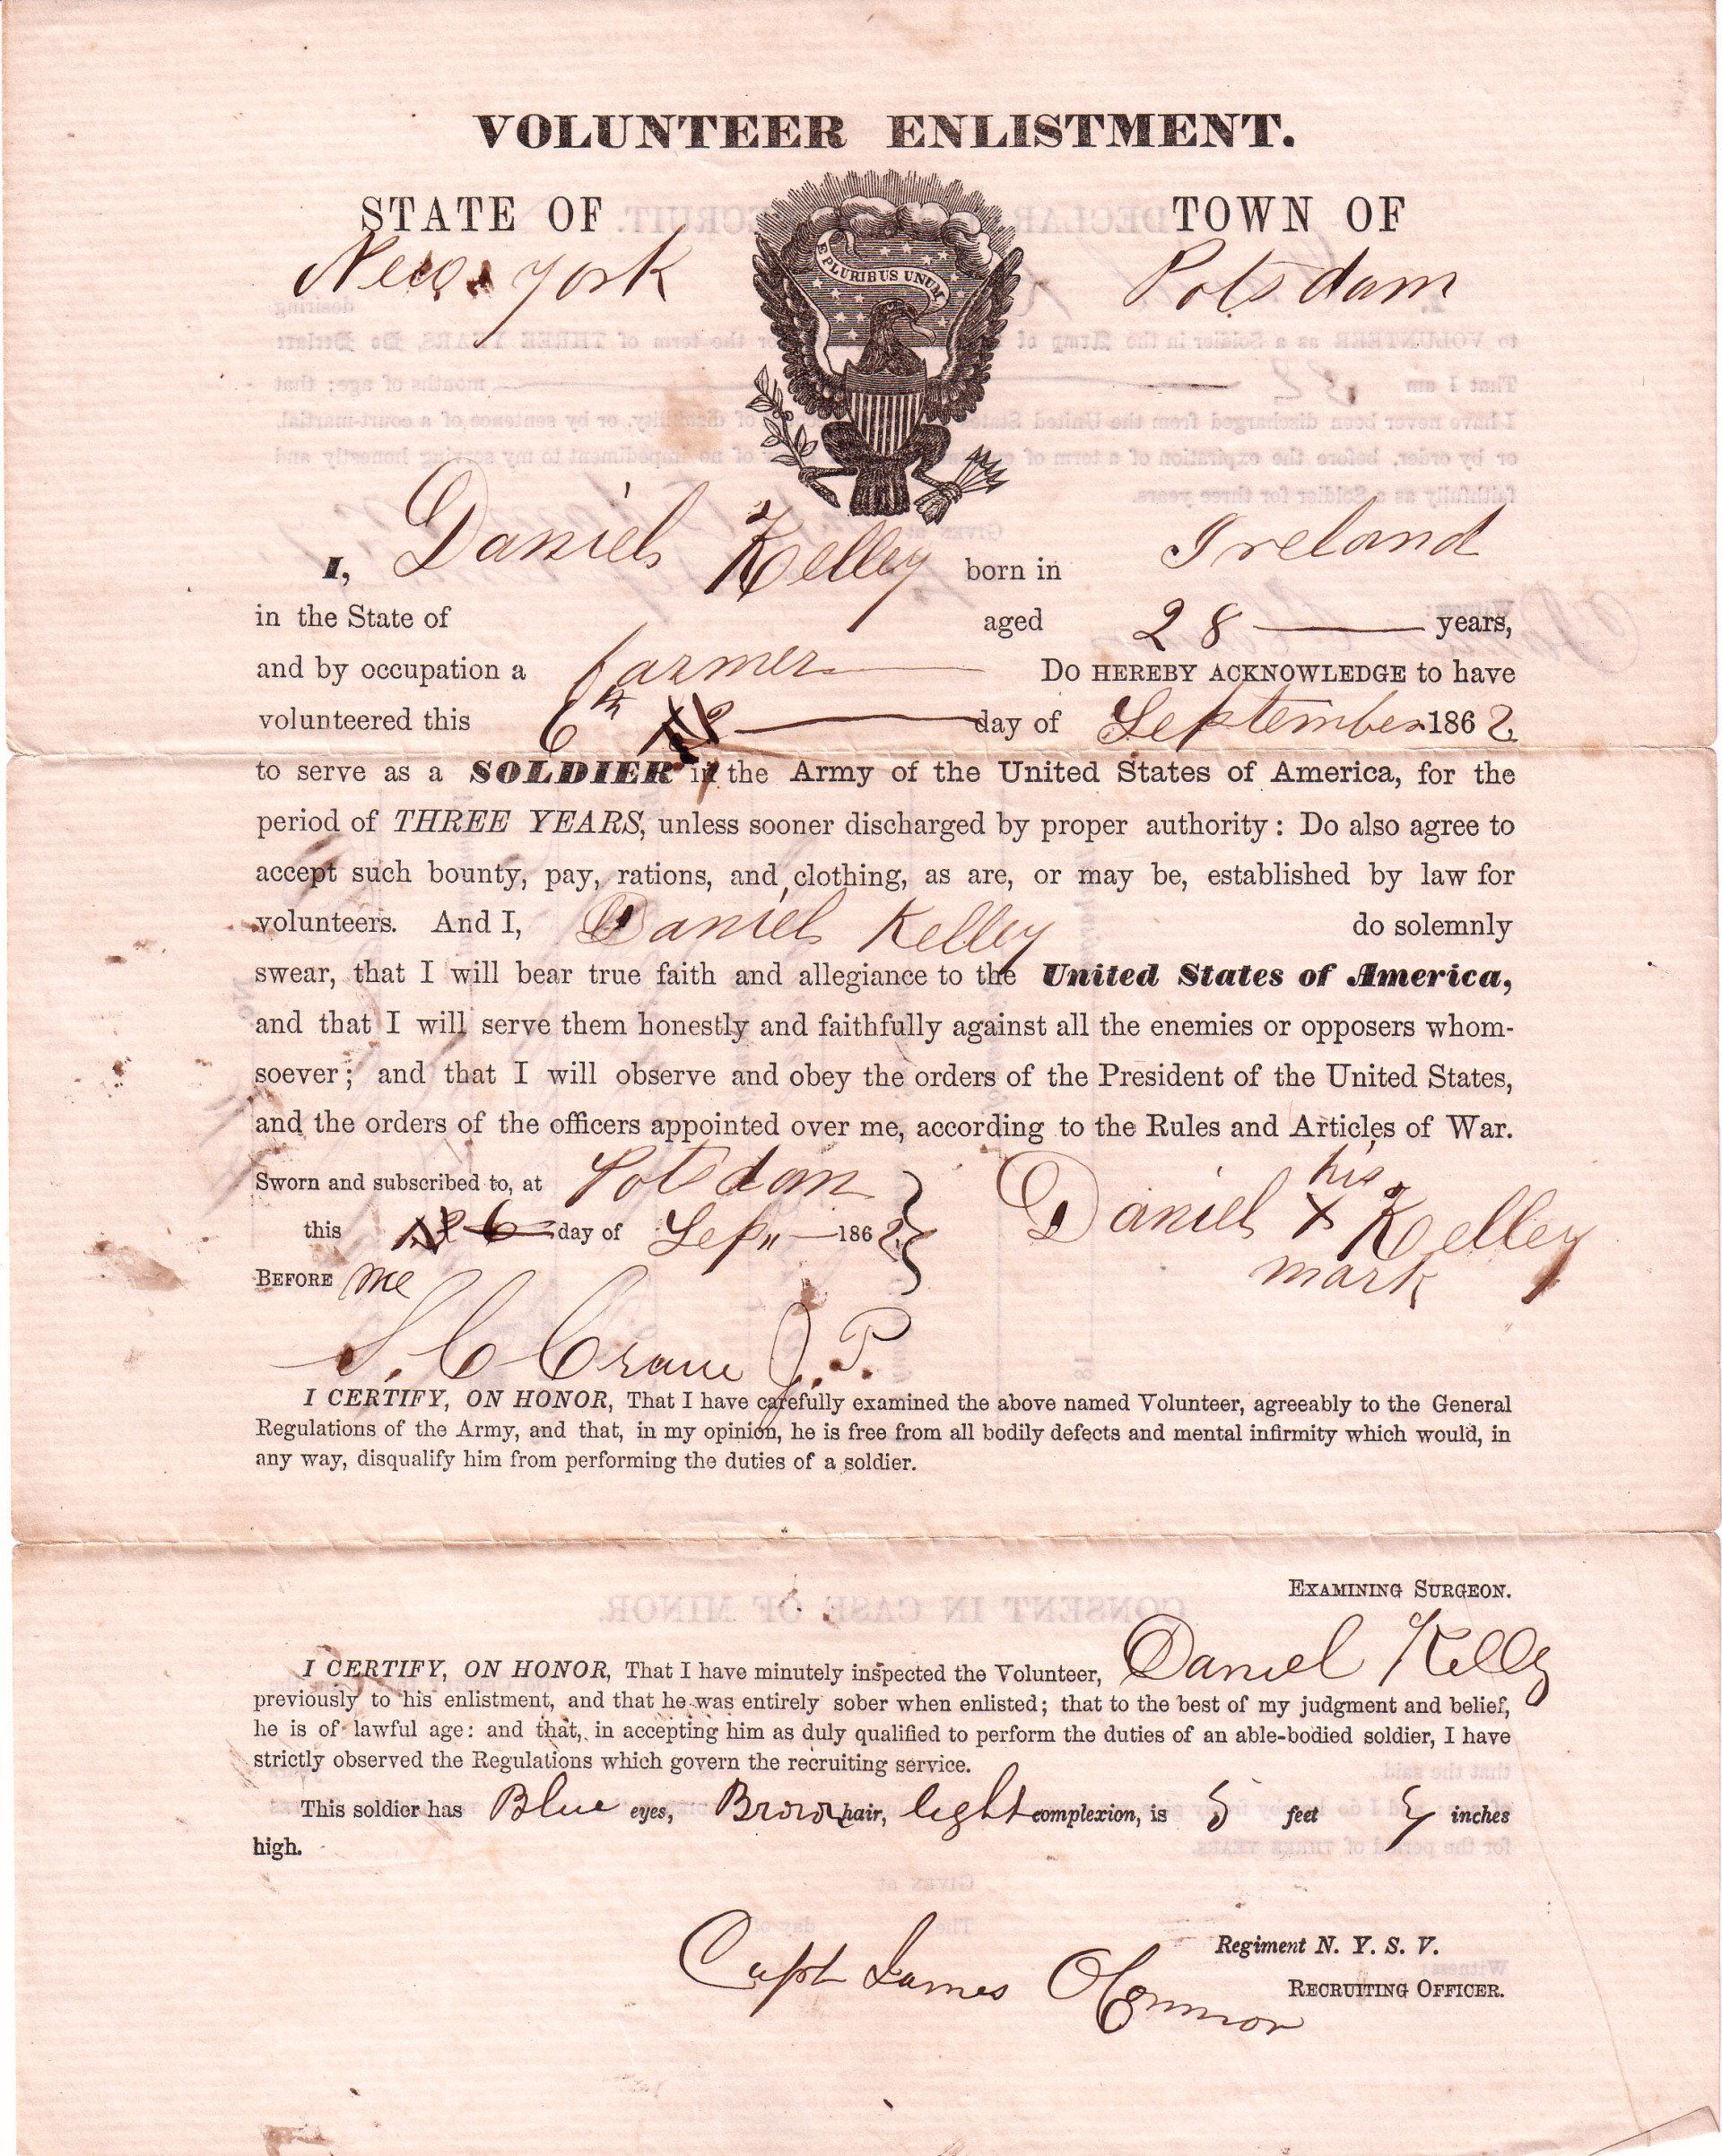 VOLUNTEER ENLISTMENT.
STATE OF TOWN OF
New York Potsdam
E PLURIBUS UNUM
I, Daniel Kelley born in Ireland
in the State of aged 28 years,
and by occupation a farmer Do HEREBY ACKNOWLEDGE to have
volunteered this 6th day of September 1862
to serve as a SOLDIER in the Army of the United States of America, for the
period of THREE YEARS, unless sooner discharged by proper authority: Do also agree to
accept such bounty, pay, rations, and clothing, as are, or may be, established by law for
volunteers. And I, Daniel Kelley do solemnly
swear, that I will bear true faith and allegiance to the United States of America,
and that I will serve them honestly and faithfully against all the enemies or opposers whom-
soever; and that I will observe and obey the orders of the President of the United States,
and the orders of the officers appointed over me, according to the Rules and Articles of War.
Sworn and subscribed to, at Potsdam
this 6 day of Sep 1862
his
Daniel X Kelley
mark
BEFORE me
S. C Crane J. P.
I CERTIFY, ON HONOR, That I have carefully examined the above named Volunteer, agreeably to the General
Regulations of the Army, and that, in my opinion, he is free from all bodily defects and mental infirmity which would, in
any way, disqualify him from performing the duties of a soldier.
EXAMINING SURGEON.
I CERTIFY, ON HONOR, That I have minutely inspected the Volunteer, Daniel Kelly
previously to his enlistment, and that he was entirely sober when enlisted; that to the best of my judgment and belief,
he is of lawful age: and that, in accepting him as duly qualified to perform the duties of an able-bodied soldier, I have
strictly observed the Regulations which govern the recruiting service.
This soldier has Blue eyes, Brown hair, light complexion, is 5 feet inches
high.
Regiment N. Y. S. V.
Capt James OConnor
RECRUITING OFFICER.